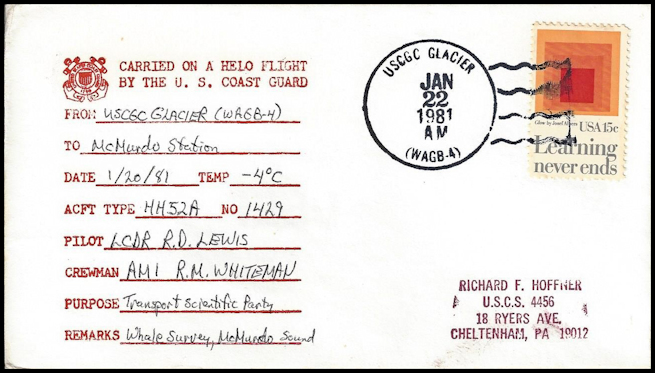 CARRIED ON A HELO FLIGHT
BY THE U. S. COAST GUARD
FROM USCGC GLACIER (WAGB-4)
TO McMurdo Station
DATE 1/20/81 TEMP -4°C
ACFT TYPE HH52A NO 1429
PILOT LCDR R.D. LEWIS
CREWMAN AM1 R.M. WHITEMAN
PURPOSE Transport Scientific Party
REMARKS Whale Survey, McMurdo Sound
USCGC GLACIER
JAN
22
1981
AM
(WAGB-4)
Glow by Josef Albers
USA 15c
Learning
never ends
RICHARD F. HOFFNER
U.S.C.S. 4456
18 RYERS AVE.
CHELTENHAM, PA 19012